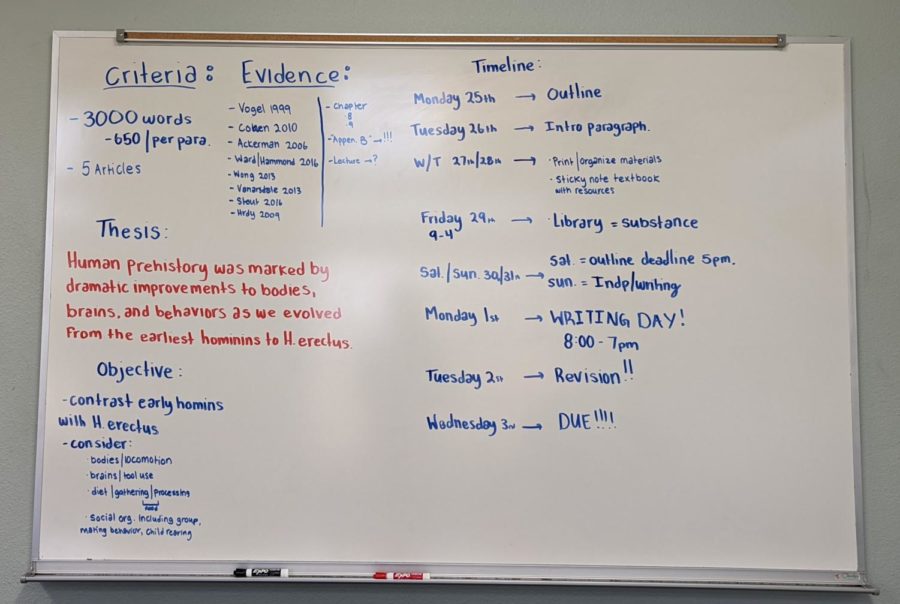 Criteria:
- 3000 words
- 650/per para.
- 5 Articles
Evidence:
- Vogel 1999
- Cohen 2010
- Ackerman 2006
- Ward/Hammond 2016
- Wong 2013
- Vanarsdale 2013
- Stout 2016
- Hrdy 2009
- Chapter
·8
·9
- "Appen. B" → !!!
- Lecture → ?
Thesis:
Human prehistory was marked by
dramatic improvements to bodies,
brains, and behaviors as we evolved
From the earliest hominins to H. erectus.
Objective:
- contrast early homins
with H. erectus
- consider:
· bodies/locomotion
· brains/tool use
· diet/gathering/processing
food
· Social org. including group,
mating behavior, child rearing
Timeline:
Monday 25th → Outline
Tuesday 26th → Intro paragraph.
W/T 27th/28th → · Print/organize materials
· Sticky note textbook
with resources
Friday 29th → · Library = substance
9-4
Sat./Sun. 30/31st → Sat. = outline deadline 5pm.
Sun. = Indp/writing
Monday 1st → WRITING DAY!
8:00 - 7pm
Tuesday 2nd → Revision!!
Wednesday 3rd → DUE!!!!
EXPO
EXPO